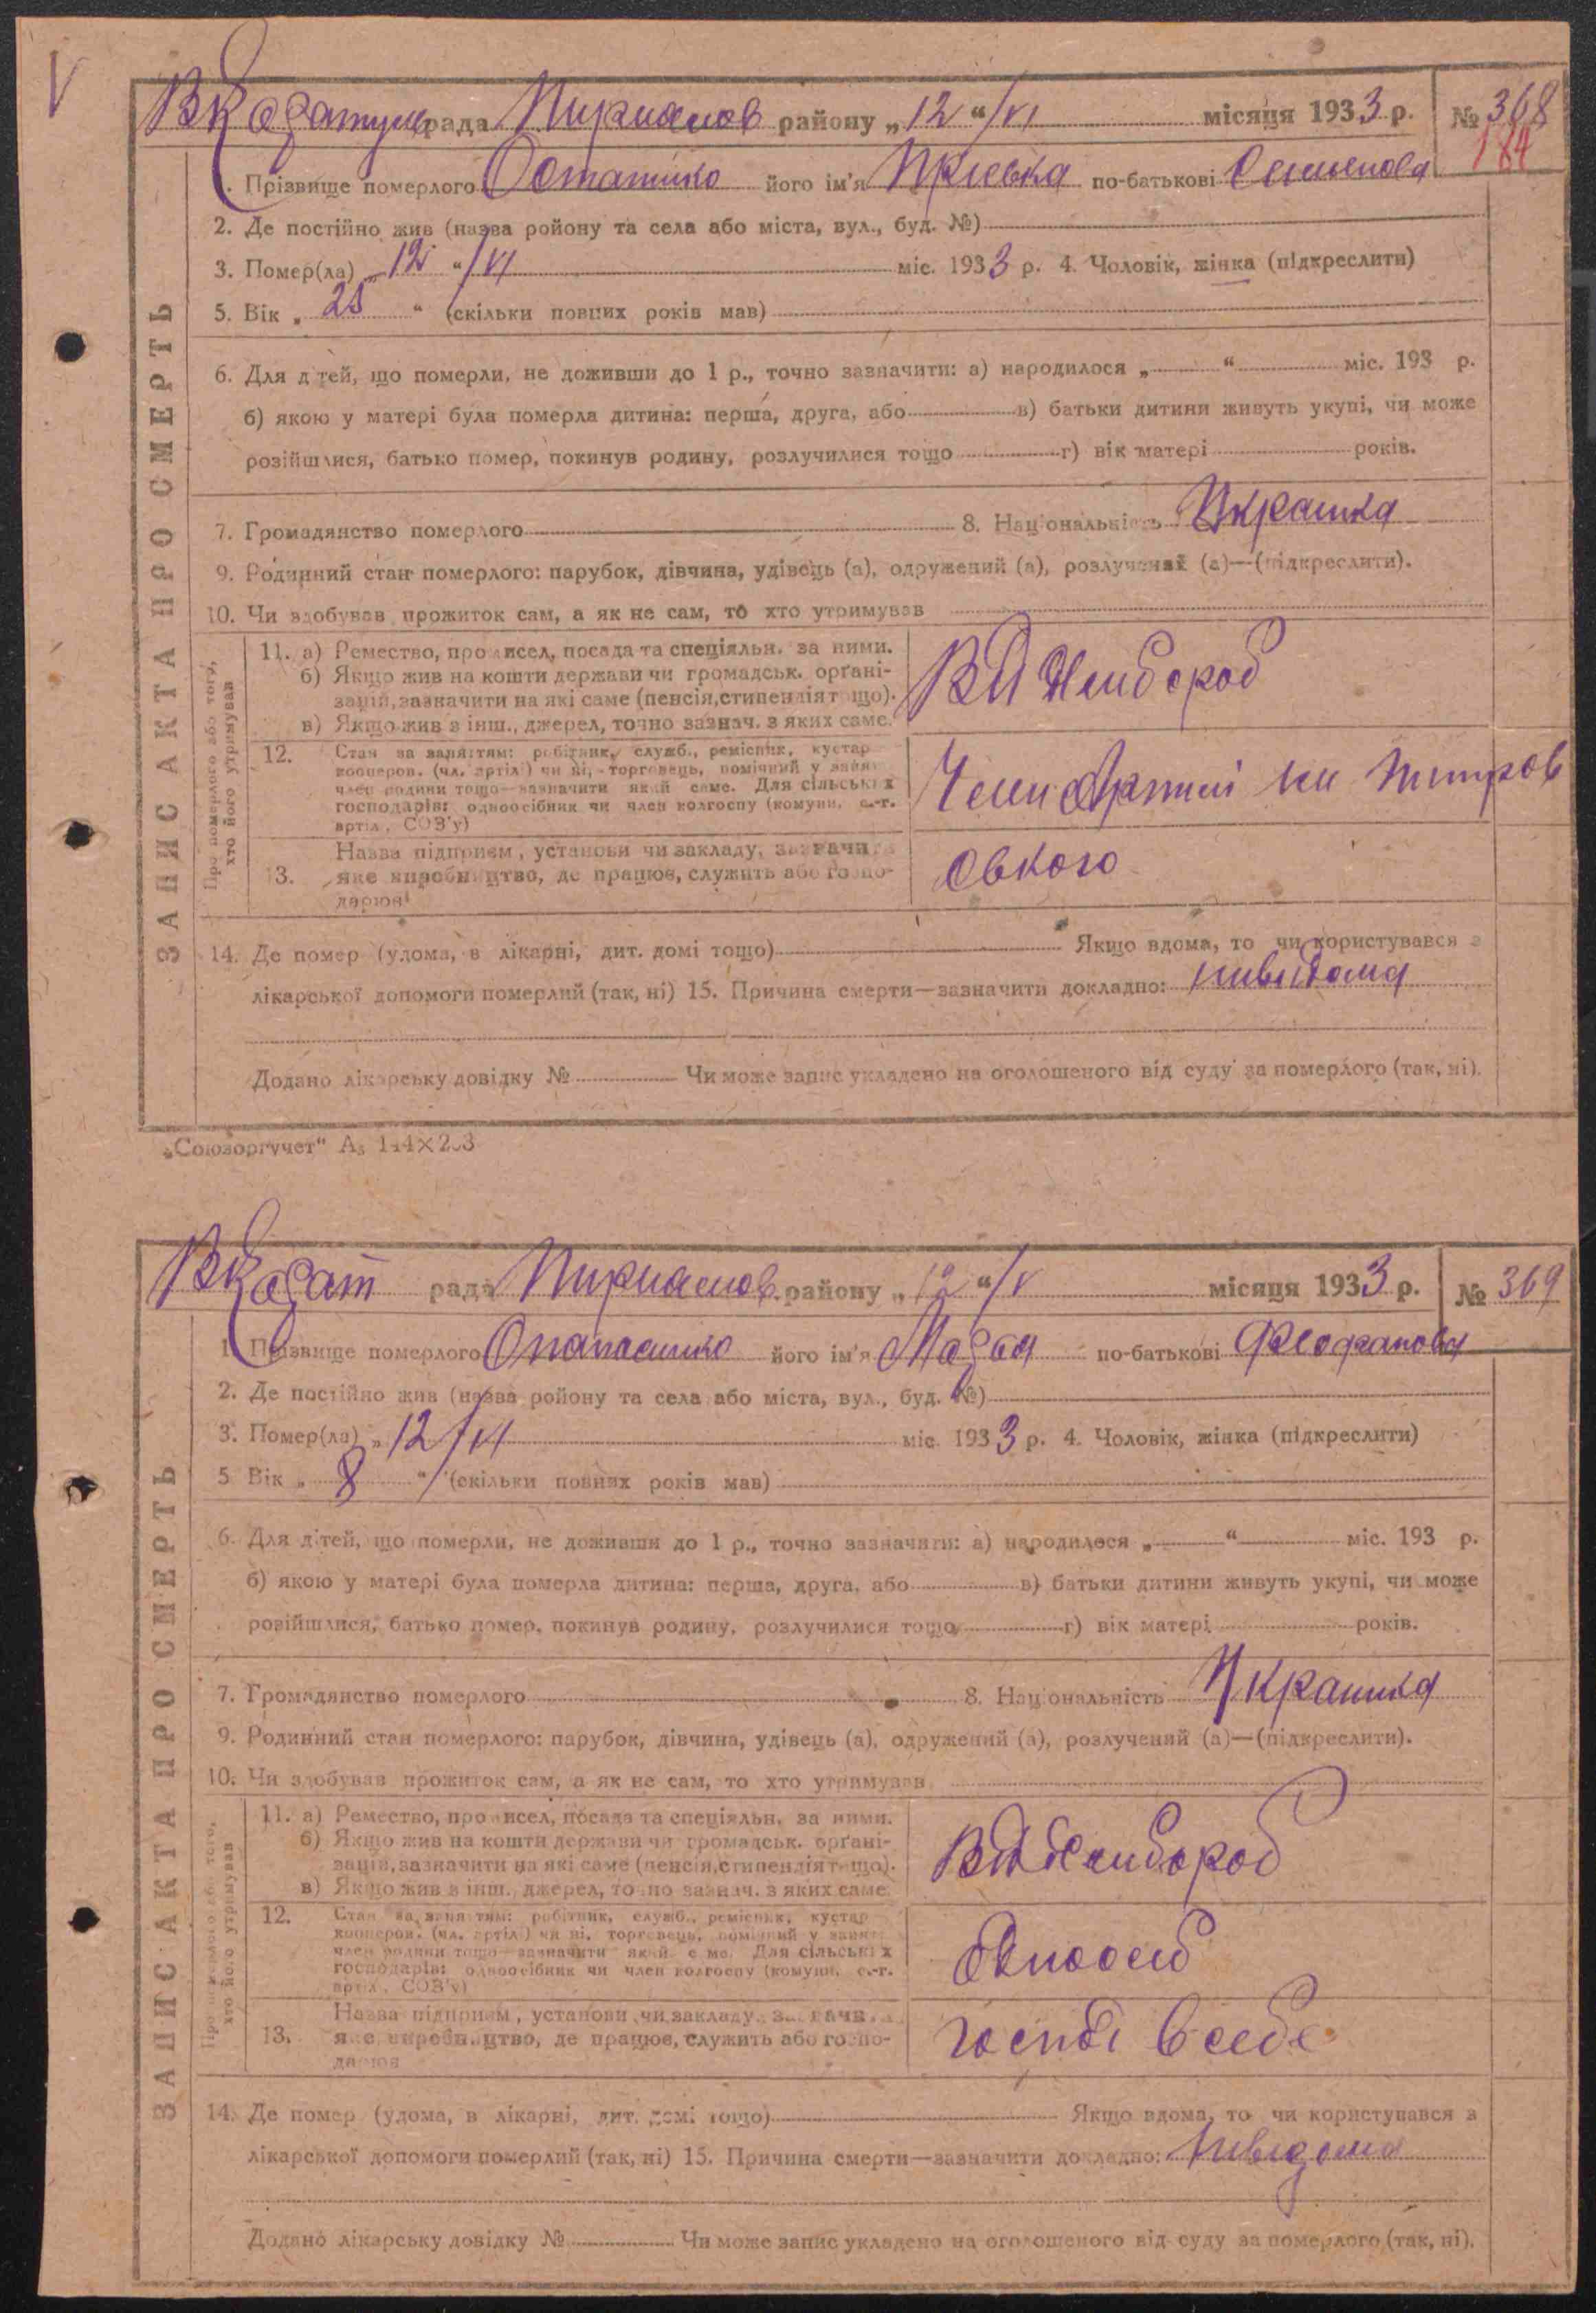 V
рада Пирианов району „12“/VI місяця 1933 р. № 368
184
1. Прізвище померлого Остатико його ім'я по-батькові Семенова
2. Де постійно жив (назва ройону та села або міста, вул., буд. №)
3. Помер(ла) „12“/VI міс. 1933 р. 4. Чоловік, жінка (підкреслити)
5. Вік „25“ (скільки повних років мав)
6. Для дітей, що померли, не доживши до 1 р., точно зазначити: а) народилося „ “ міс. 193 р.
б) якою у матері була померла дитина: перша, друга, або в) батьки дитини живуть укупі, чи може
розійшлися, батько помер, покинув родину, розлучилися тощо г) вік матері років.
7. Громадянство померлого 8. Національність Украинка
9. Родинний стан померлого: парубок, дівчина, удівець (а), одружений (а), розлучений (а)—(підкреслити).
10. Чи здобував прожиток сам, а як не сам, то хто утримував
ЗАПИС АКТА ПРО СМЕРТЬ
Про померлого або того, хто його утримував
11. а) Ремество, промисел, посада та спеціяльн. за ними.
б) Якщо жив на кошти держави чи громадськ. орґані-
зацій, зазначити на які саме (пенсія, стипендія тощо).
в) Якщо жив з інш., джерел, точно зазнач. з яких саме.
Від Хлибороб
12. Стан за заняттям: робітник, служб., ремісник, кустар
кооперов. (чл. артілі) чи ні, торговець, помічний у занят.
член родини тощо—зазначити який саме. Для сільських
господарів: одноосібник чи член колгоспу (комуни, с.-г.
артіл., СОЗ'у)
Член Артилі им Питров
13. Назва підприєм., установи чи закладу, зазначити
яке виробництво, де працює, служить або госпо-
дарює
ського
14. Де помер (удома, в лікарні, дит. домі тощо) Якщо вдома, то чи користувався з
лікарської допомоги померлий (так, ні) 15. Причина смерти—зазначити докладно: нивидома
Додано лікарську довідку № Чи може запис укладено на оголошеного від суду за померлого (так, ні).
„Союзоргучет“ А₅ 144×203
рада Пирианов району „12“/V місяця 1933 р. № 369
1. Прізвище померлого Опанасинко його ім'я по-батькові Феофанова
2. Де постійно жив (назва ройону та села або міста, вул., буд. №)
3. Помер(ла) „12/VI міс. 1933 р. 4. Чоловік, жінка (підкреслити)
5 Вік „8“ (скільки повних років мав)
6. Для дітей, що померли, не доживши до 1 р., точно зазначити: а) народилося „ “ міс. 193 р.
б) якою у матері була померла дитина: перша, друга, або в) батьки дитини живуть укупі, чи може
розійшлися, батько помер, покинув родину, розлучилися тощо г) вік матері років.
7. Громадянство померлого 8. Національність Украинка
9. Родинний стан померлого: парубок, дівчина, удівець (а), одружений (а), розлучений (а)—(підкреслити).
10. Чи здобував прожиток сам, а як не сам, то хто утримував
ЗАПИС АКТА ПРО СМЕРТЬ
Про померлого або того, хто його утримував
11. а) Ремество, промисел, посада та спеціяльн. за ними.
б) Якщо жив на кошти держави чи громадськ. орґані-
зацій, зазначити на які саме (пенсія, стипендія тощо).
в) Якщо жив з інш., джерел, точно зазнач. з яких саме.
Від Хлибороб
12. Стан за заняттям: робітник, служб., ремісник, кустар
кооперов. (чл. артілі) чи ні, торговець, помічний у занят.
член родини тощо—зазначити який саме. Для сільських
господарів: одноосібник чи член колгоспу (комуни, с.-г.
артіл., СОЗ'у)
Одноосиб
13. Назва підприєм., установи чи закладу, зазначити
яке виробництво, де працює, служить або госпо-
дарює
госпді в себе
14. Де помер (удома, в лікарні, дит. домі тощо) Якщо вдома, то чи користувався з
лікарської допомоги померлий (так, ні) 15. Причина смерти—зазначити докладно: нивидома
Додано лікарську довідку № Чи може запис укладено на оголошеного від суду за померлого (так, ні).